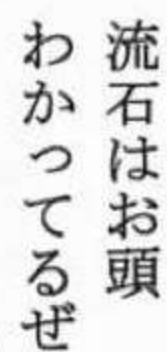 流石はお頭
わかってるぜ